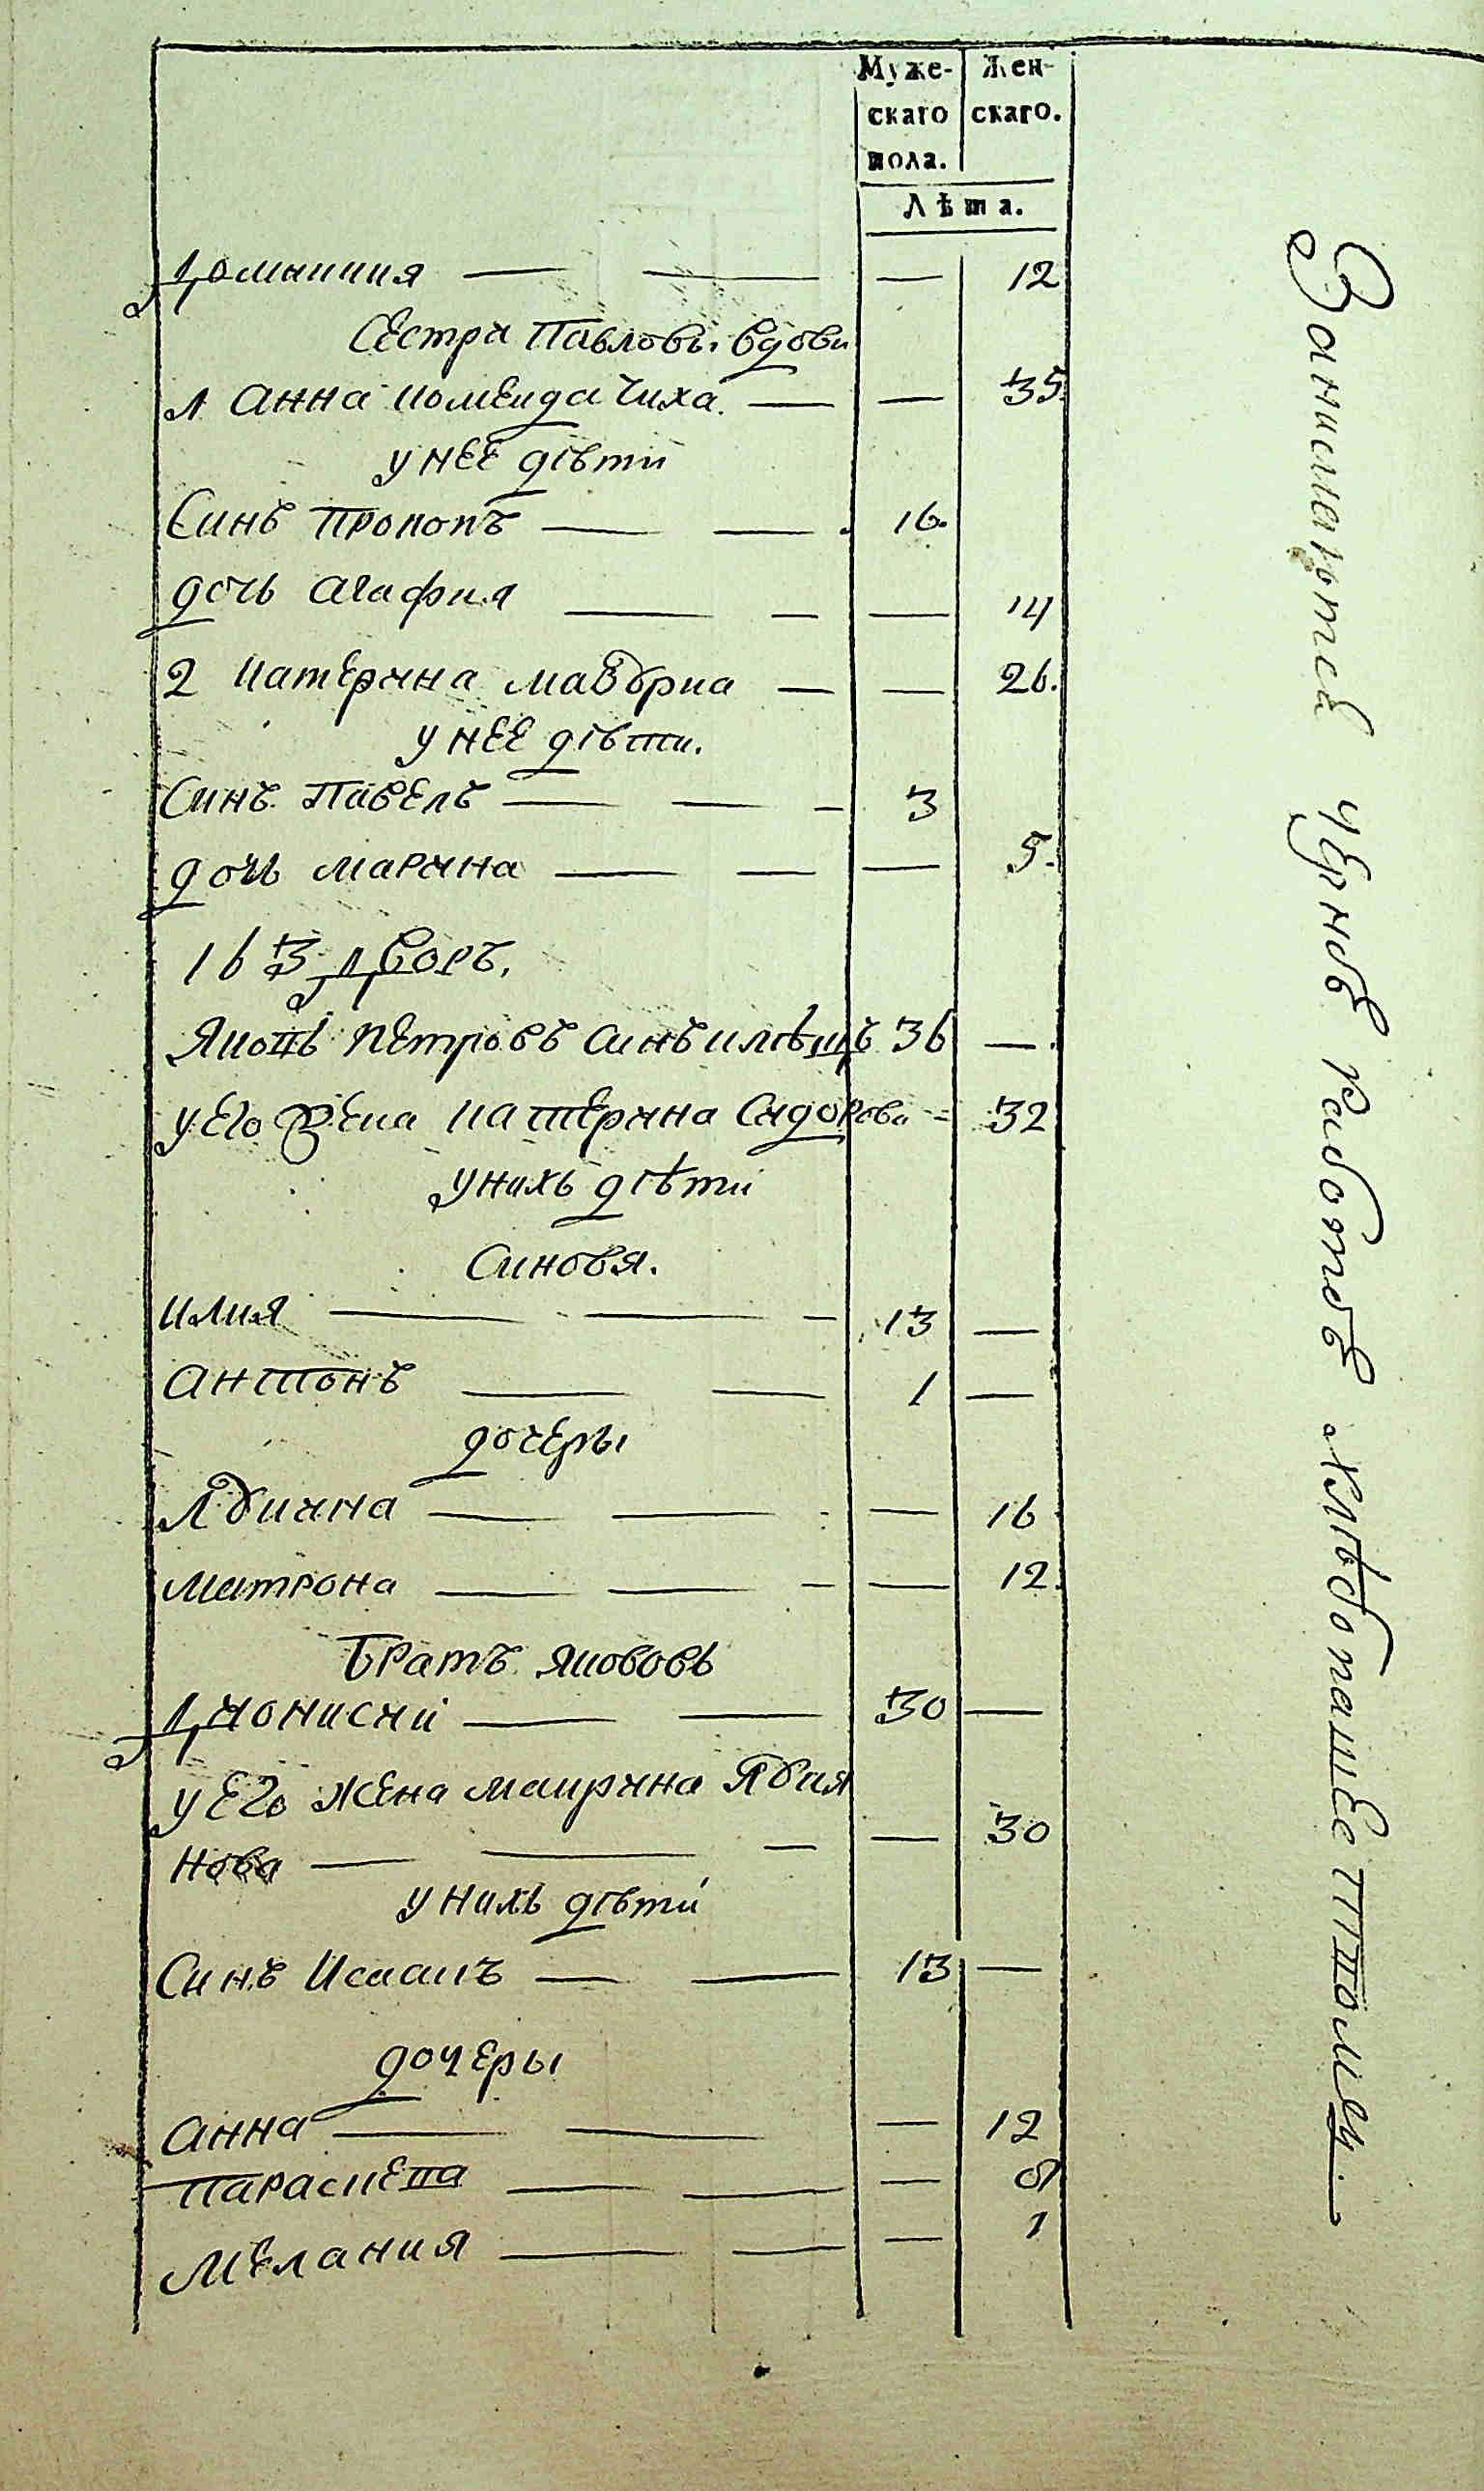 Муже- Жен-
скаго скаго.
пола.
Лѣта.
Домникия — — — 12
Сестри Павловы вдови
1 Анна — — 35
у нее дѣти
Синъ Прокопъ — — 16.
дочь Агафия — — — 14
2 Катерина — — 26.
у нее дѣти.
Синъ Павелъ — — — 3
дочь Марина — — — 5.
163 дворъ.
Яковъ Петровъ синъ 36 —
у его жена Катерина Сидорова — 32
у нихъ дѣти
Синовя.
Илия — — — 13 —
Антонъ — — 1 —
дочеры
— — — 16
Матрона — — — — 12.
Братъ Якововъ
Дионисий — — 30 —
у его жена Маирина
нова — — — — 30
у нихъ дѣти
Синъ Исаакъ — — 13 —
дочеры
Анна — — — 12
Параскева — — — 8
Мелания — — — 1
Занимаютса чернов работов хлѣбопашеством.